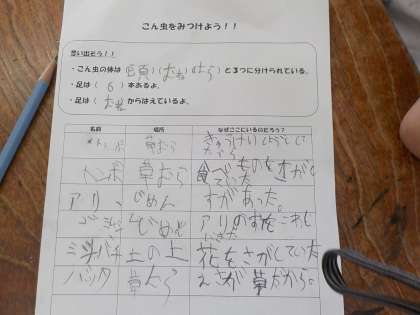 こん虫をみつけよう！！
思い出そう！！
・こん虫の体は（頭）（むね）（はら）と３つに分けられている。
・足は（ 6 ）本あるよ。
・足は（ むね ）からはえているよ。
名前 場所 なぜここにいるのだろう？
トンボ 草むら
トンボ 草むら 食べものをさがし
アリ じめん すがあった。
じめん アリのすを
ミツバチ 土の上 花をさがしていた
バッタ 草むら えさが草だから。